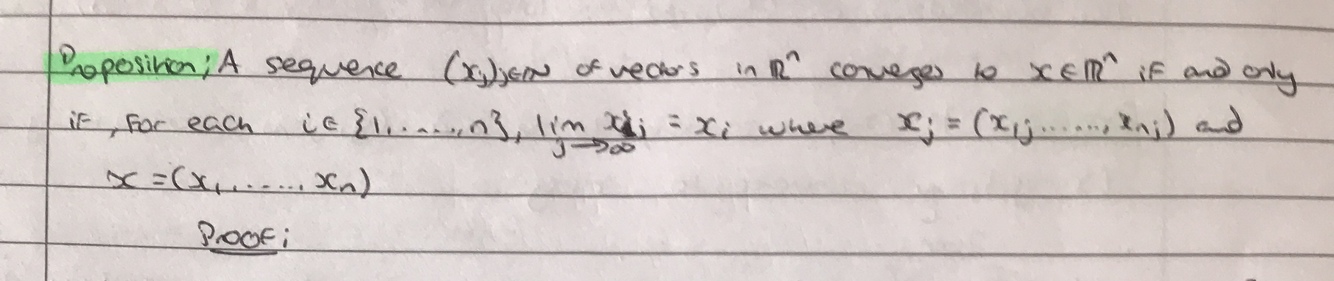 Proposition; A sequence (xⱼ)ⱼ∈ℕ of vectors in ℝⁿ converges to x∈ℝⁿ if and only
if, for each i∈{1,....,n}, lim j→∞ xᵢⱼ = xᵢ where xⱼ = (x₁ⱼ......, xₙⱼ) and
x = (x₁,...... xₙ)
Proof;